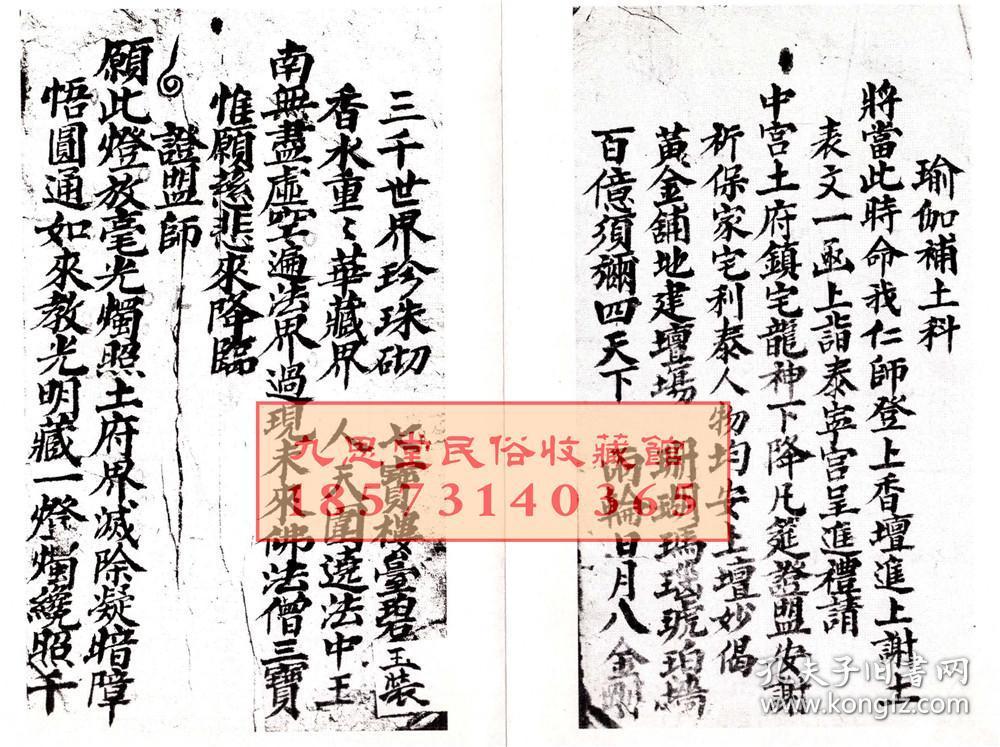 瑜伽補土科
將當此時命我仁師登上香壇進上謝土
表文一函上詣泰寍宮呈進禮請
中宮土府鎮宅龍神下降凡筵證盟安謝
祈保家宅利泰人物均安土壇妙偈
黃金舖地建壇場 珊瑚瑪瑙琥珀墻
百億須彌四天下 兩輪日月八金剛
三千世界珍珠砌 七寶樓臺碧玉裝
香水重〻華藏界 人天圍遶法中王
南無盡虛空遍法界過現未來佛法僧三寶
惟願慈悲來降臨
證盟師
願此燈放毫光燭照土府界滅除凝暗障
悟圓通如來教光明藏一燈燭纔照千
九思堂民俗收藏館
18573140365
孔夫子旧书网
www.kongfz.com